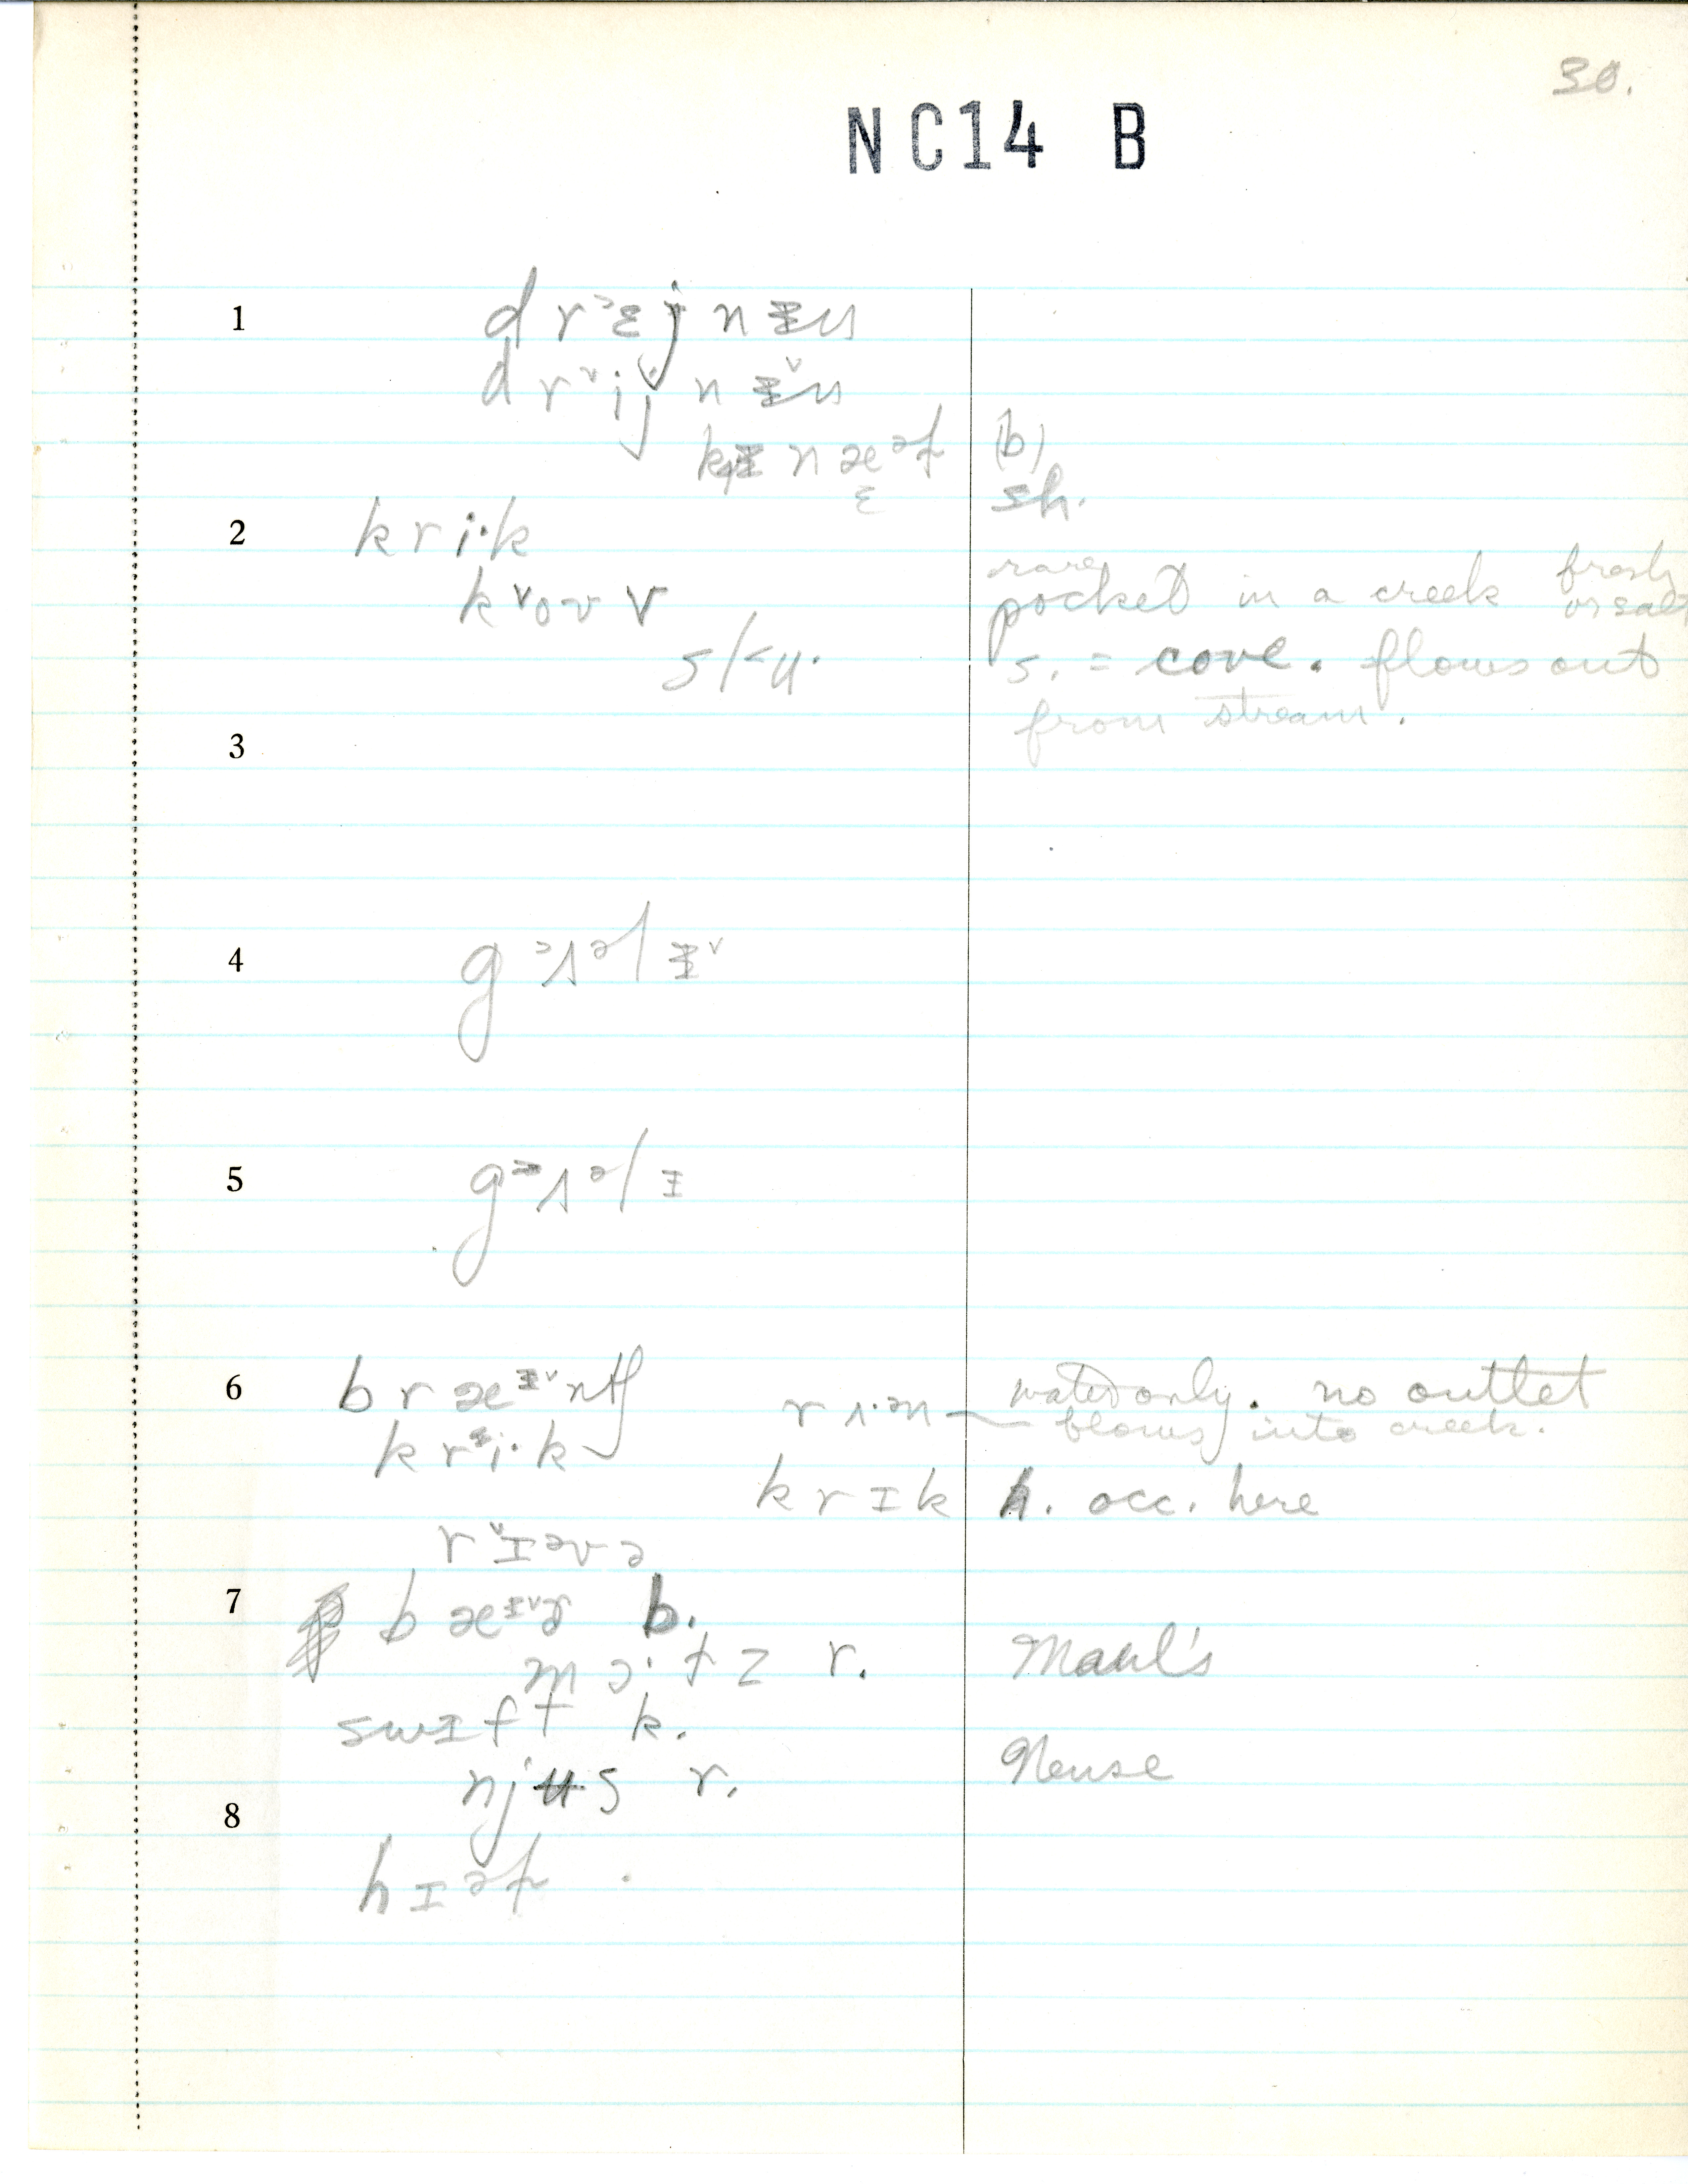 30.
NC14 B
1
d r ˃ɛ j n ɪ̵ u
d r ˅i j n ɪ̵˅ u
k n æ ə f (b)
ɛ sh.
2
k r i· k rare
k ˅o v v pocket in a creek fresh or salt
s l ˂u· s. = cove. flows out
from stream.
3
4
g ˃ʌ ə l ɪ̵ ˅
5
g ˃ʌ ə l ɪ̵
6
b r æ ɪ̵˅ n tʃ r ʌ· ə n — water only. no outlet
k r i· k flows into creek.
k r ɪ k h. occ. here
r ˅ɪ ə v ə
7
b æ ɪ̵˅ ə b.
m ɔ· t z r. Maul's
s w ɪ f t k.
n j ʉ s r. Neuse
8
h ɪ ə f